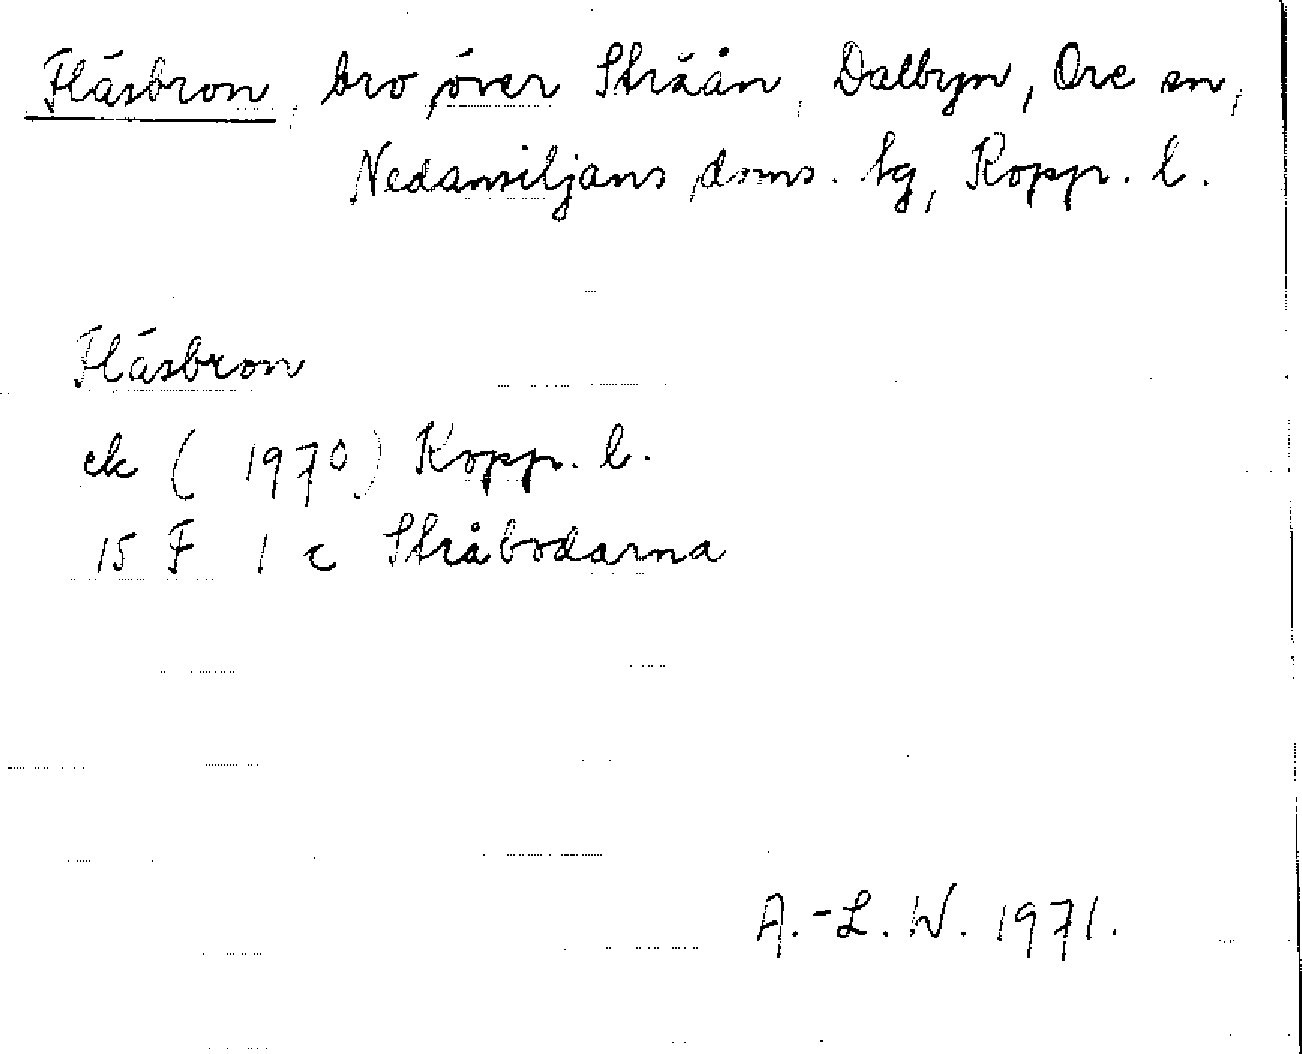 Fläsbron, bro över Stråån, Dalbyn, Ore sn,
Nedansiljans doms. tg, Kopp. l.
Fläsbron
ek (1970) Kopp. l.
15 F 1 c Stråbodarna
A.-L. W. 1971.